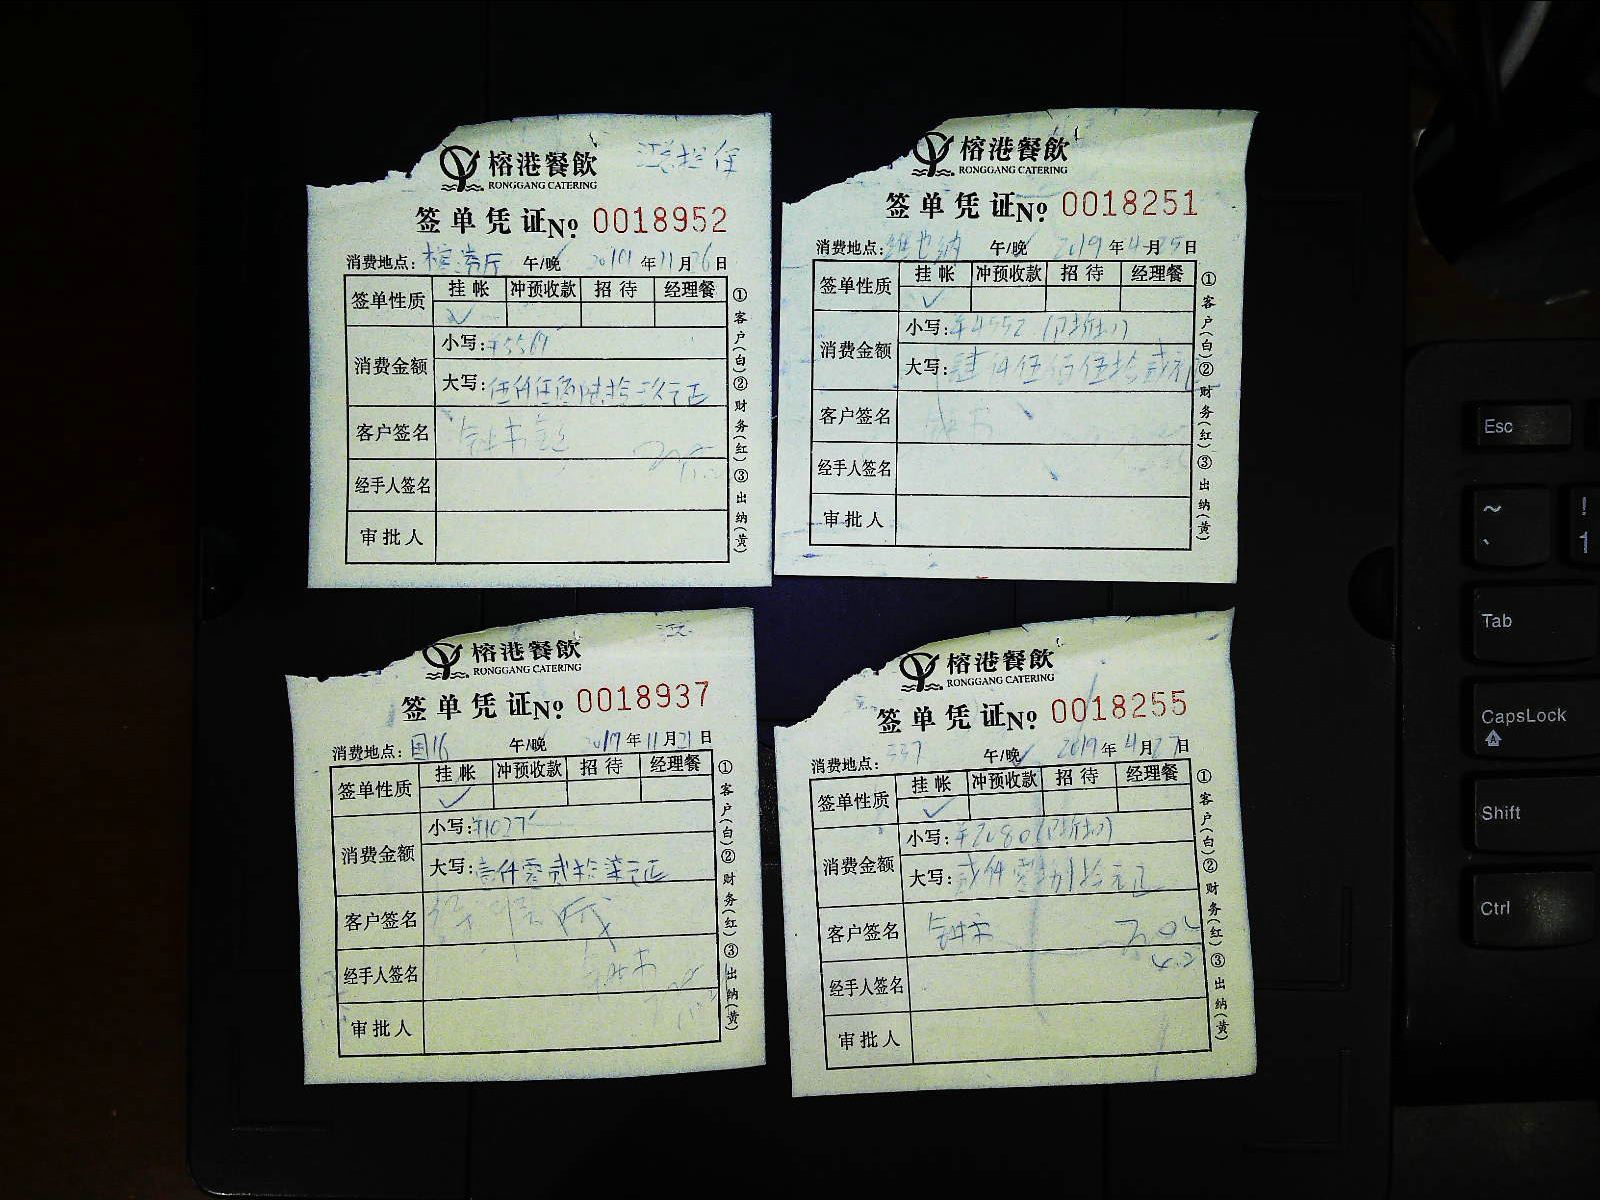 榕港餐飲
RONGGANG CATERING
签单凭证 No 0018952
消费地点: 午/晚 年11月26日
签单性质 挂帐 冲预收款 招待 经理餐
✓
消费金额 小写:
大写:
客户签名
经手人签名
审批人
①客户(白)②财务(红)③出纳(黄)
榕港餐飲
RONGGANG CATERING
签单凭证 No 0018251
消费地点: 维也纳 午/晚 2019年4月25日
签单性质 挂帐 冲预收款 招待 经理餐
✓
消费金额 小写: ¥4552 (已折扣)
大写: 肆仟伍佰伍拾贰元
客户签名
经手人签名
审批人
①客户(白)②财务(红)③出纳(黄)
榕港餐飲
RONGGANG CATERING
签单凭证 No 0018937
消费地点: 国16 午/晚 2017年11月21日
签单性质 挂帐 冲预收款 招待 经理餐
✓
消费金额 小写: ¥1027
大写: 壹仟零贰拾柒元正
客户签名
经手人签名
审批人
①客户(白)②财务(红)③出纳(黄)
榕港餐飲
RONGGANG CATERING
签单凭证 No 0018255
消费地点: 337 午/晚 2019年4月27日
签单性质 挂帐 冲预收款 招待 经理餐
✓
消费金额 小写: ¥2080 (已折扣)
大写: 贰仟零捌拾元正
客户签名
经手人签名
审批人
①客户(白)②财务(红)③出纳(黄)
Esc
~
!
1
Tab
CapsLock
Shift
Ctrl